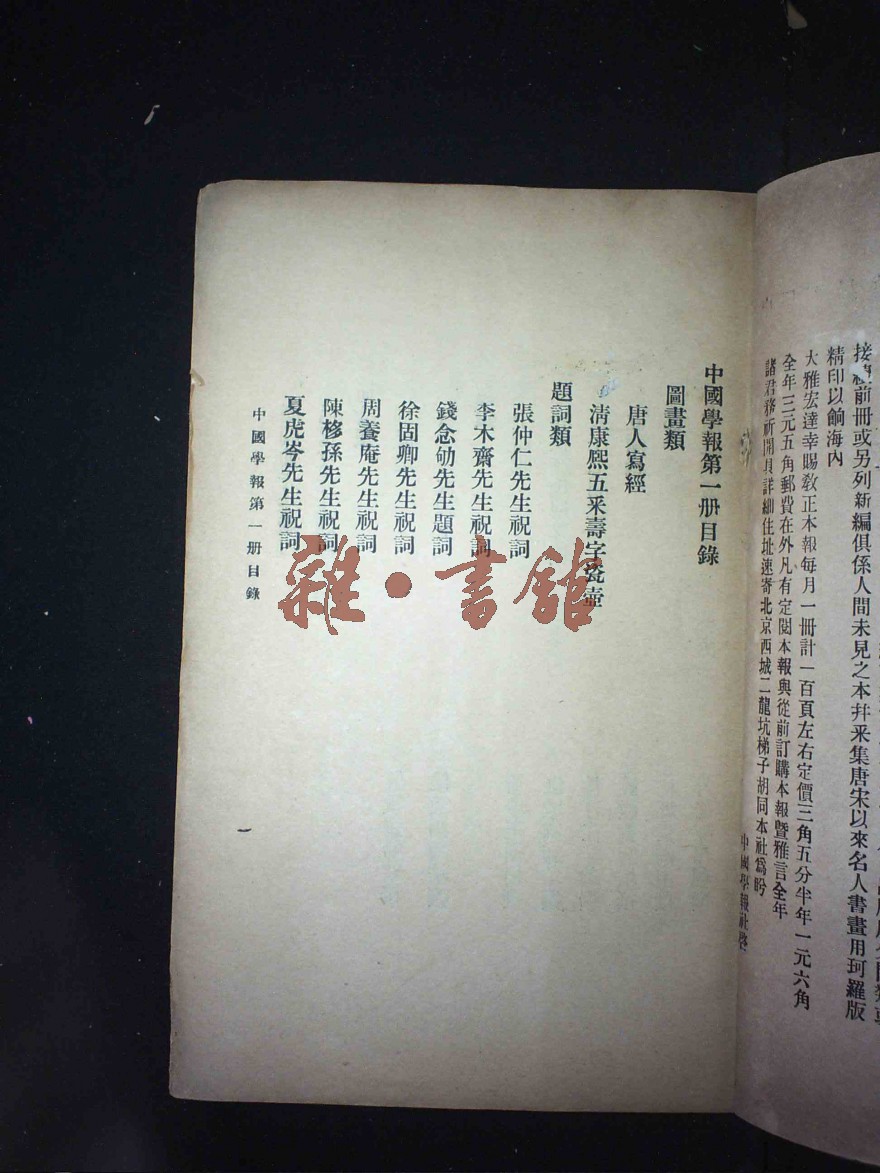 接續前冊或另列新編俱係人間未見之本幷采集唐宋以來名人書畫用珂羅版
精印以餉海內
大雅宏達幸賜敎正本報每月一冊計一百頁左右定價三角五分半年一元六角
全年三元五角郵費在外凡有定閱本報與從前訂購本報曁雅言全年
諸君務祈開具詳細住址速寄北京西城二龍坑梯子胡同本社爲盼
中國學報社啓
中國學報第一册目錄
圖畫類
唐人寫經
淸康熙五采壽字瓷壺
題詞類
張仲仁先生祝詞
李木齋先生祝詞
錢念劬先生題詞
徐固卿先生祝詞
周養庵先生祝詞
陳移孫先生祝詞
夏虎岑先生祝詞
中國學報第一册目錄
一
雜·書館